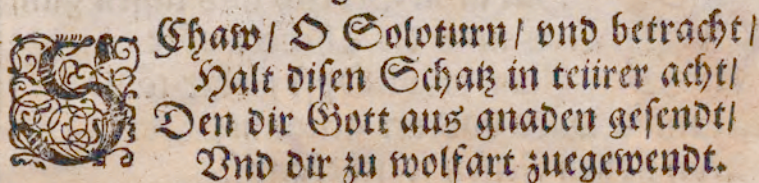 SChaw/ O Soloturn/ vnd betracht/
Halt disen Schatz in teürer acht/
Den dir Gott aus gnaden gesendt/
Vnd dir zu wolfart zuegewendt.